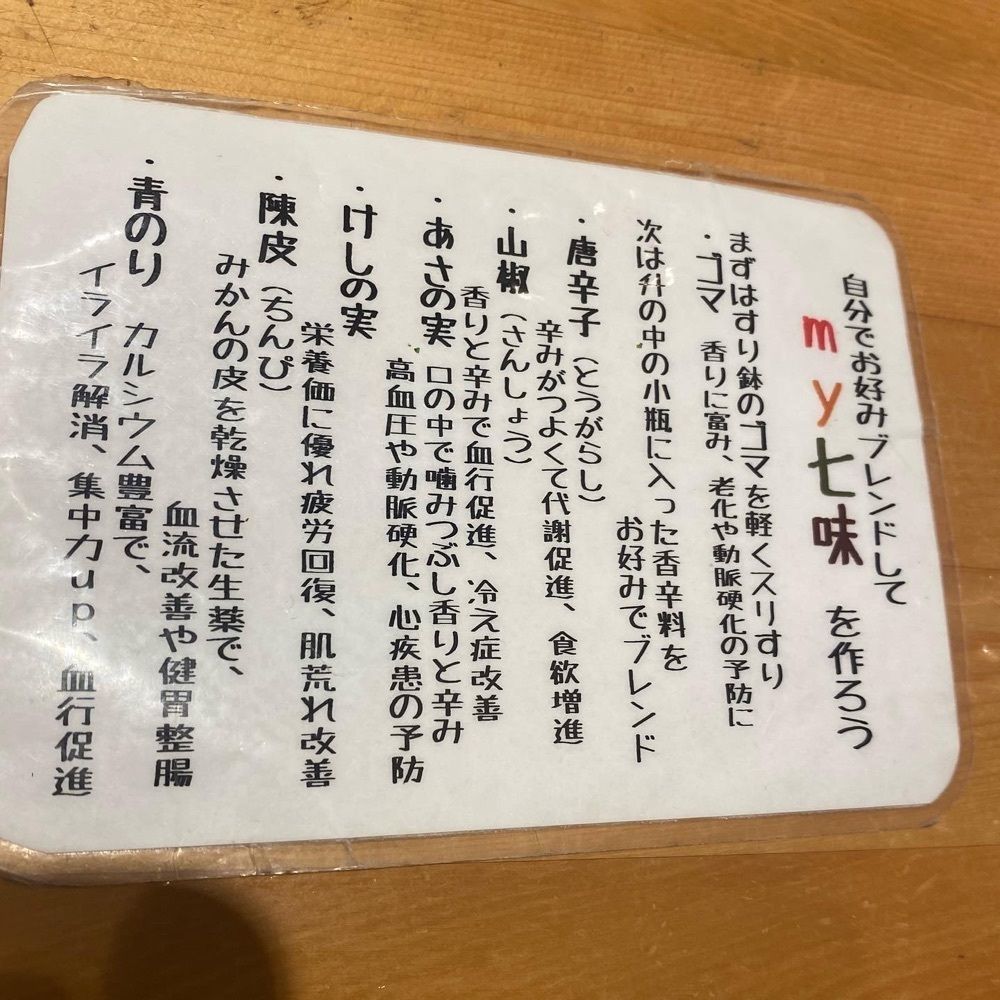 自分でお好みブレンドして
my七味 を作ろう
まずはすり鉢のゴマを軽くスリすり
・ゴマ 香りに富み、老化や動脈硬化の予防に
次は升の中の小瓶に入った香辛料を
お好みでブレンド
・唐辛子(とうがらし)
辛みがつよくて代謝促進、食欲増進
・山椒(さんしょう)
香りと辛みで血行促進、冷え症改善
・あさの実 口の中で噛みつぶし香りと辛み
高血圧や動脈硬化、心疾患の予防
・けしの実
栄養価に優れ疲労回復、肌荒れ改善
・陳皮(ちんぴ)
みかんの皮を乾燥させた生薬で、
血流改善や健胃整腸
・青のり カルシウム豊富で、
イライラ解消、集中力up、血行促進